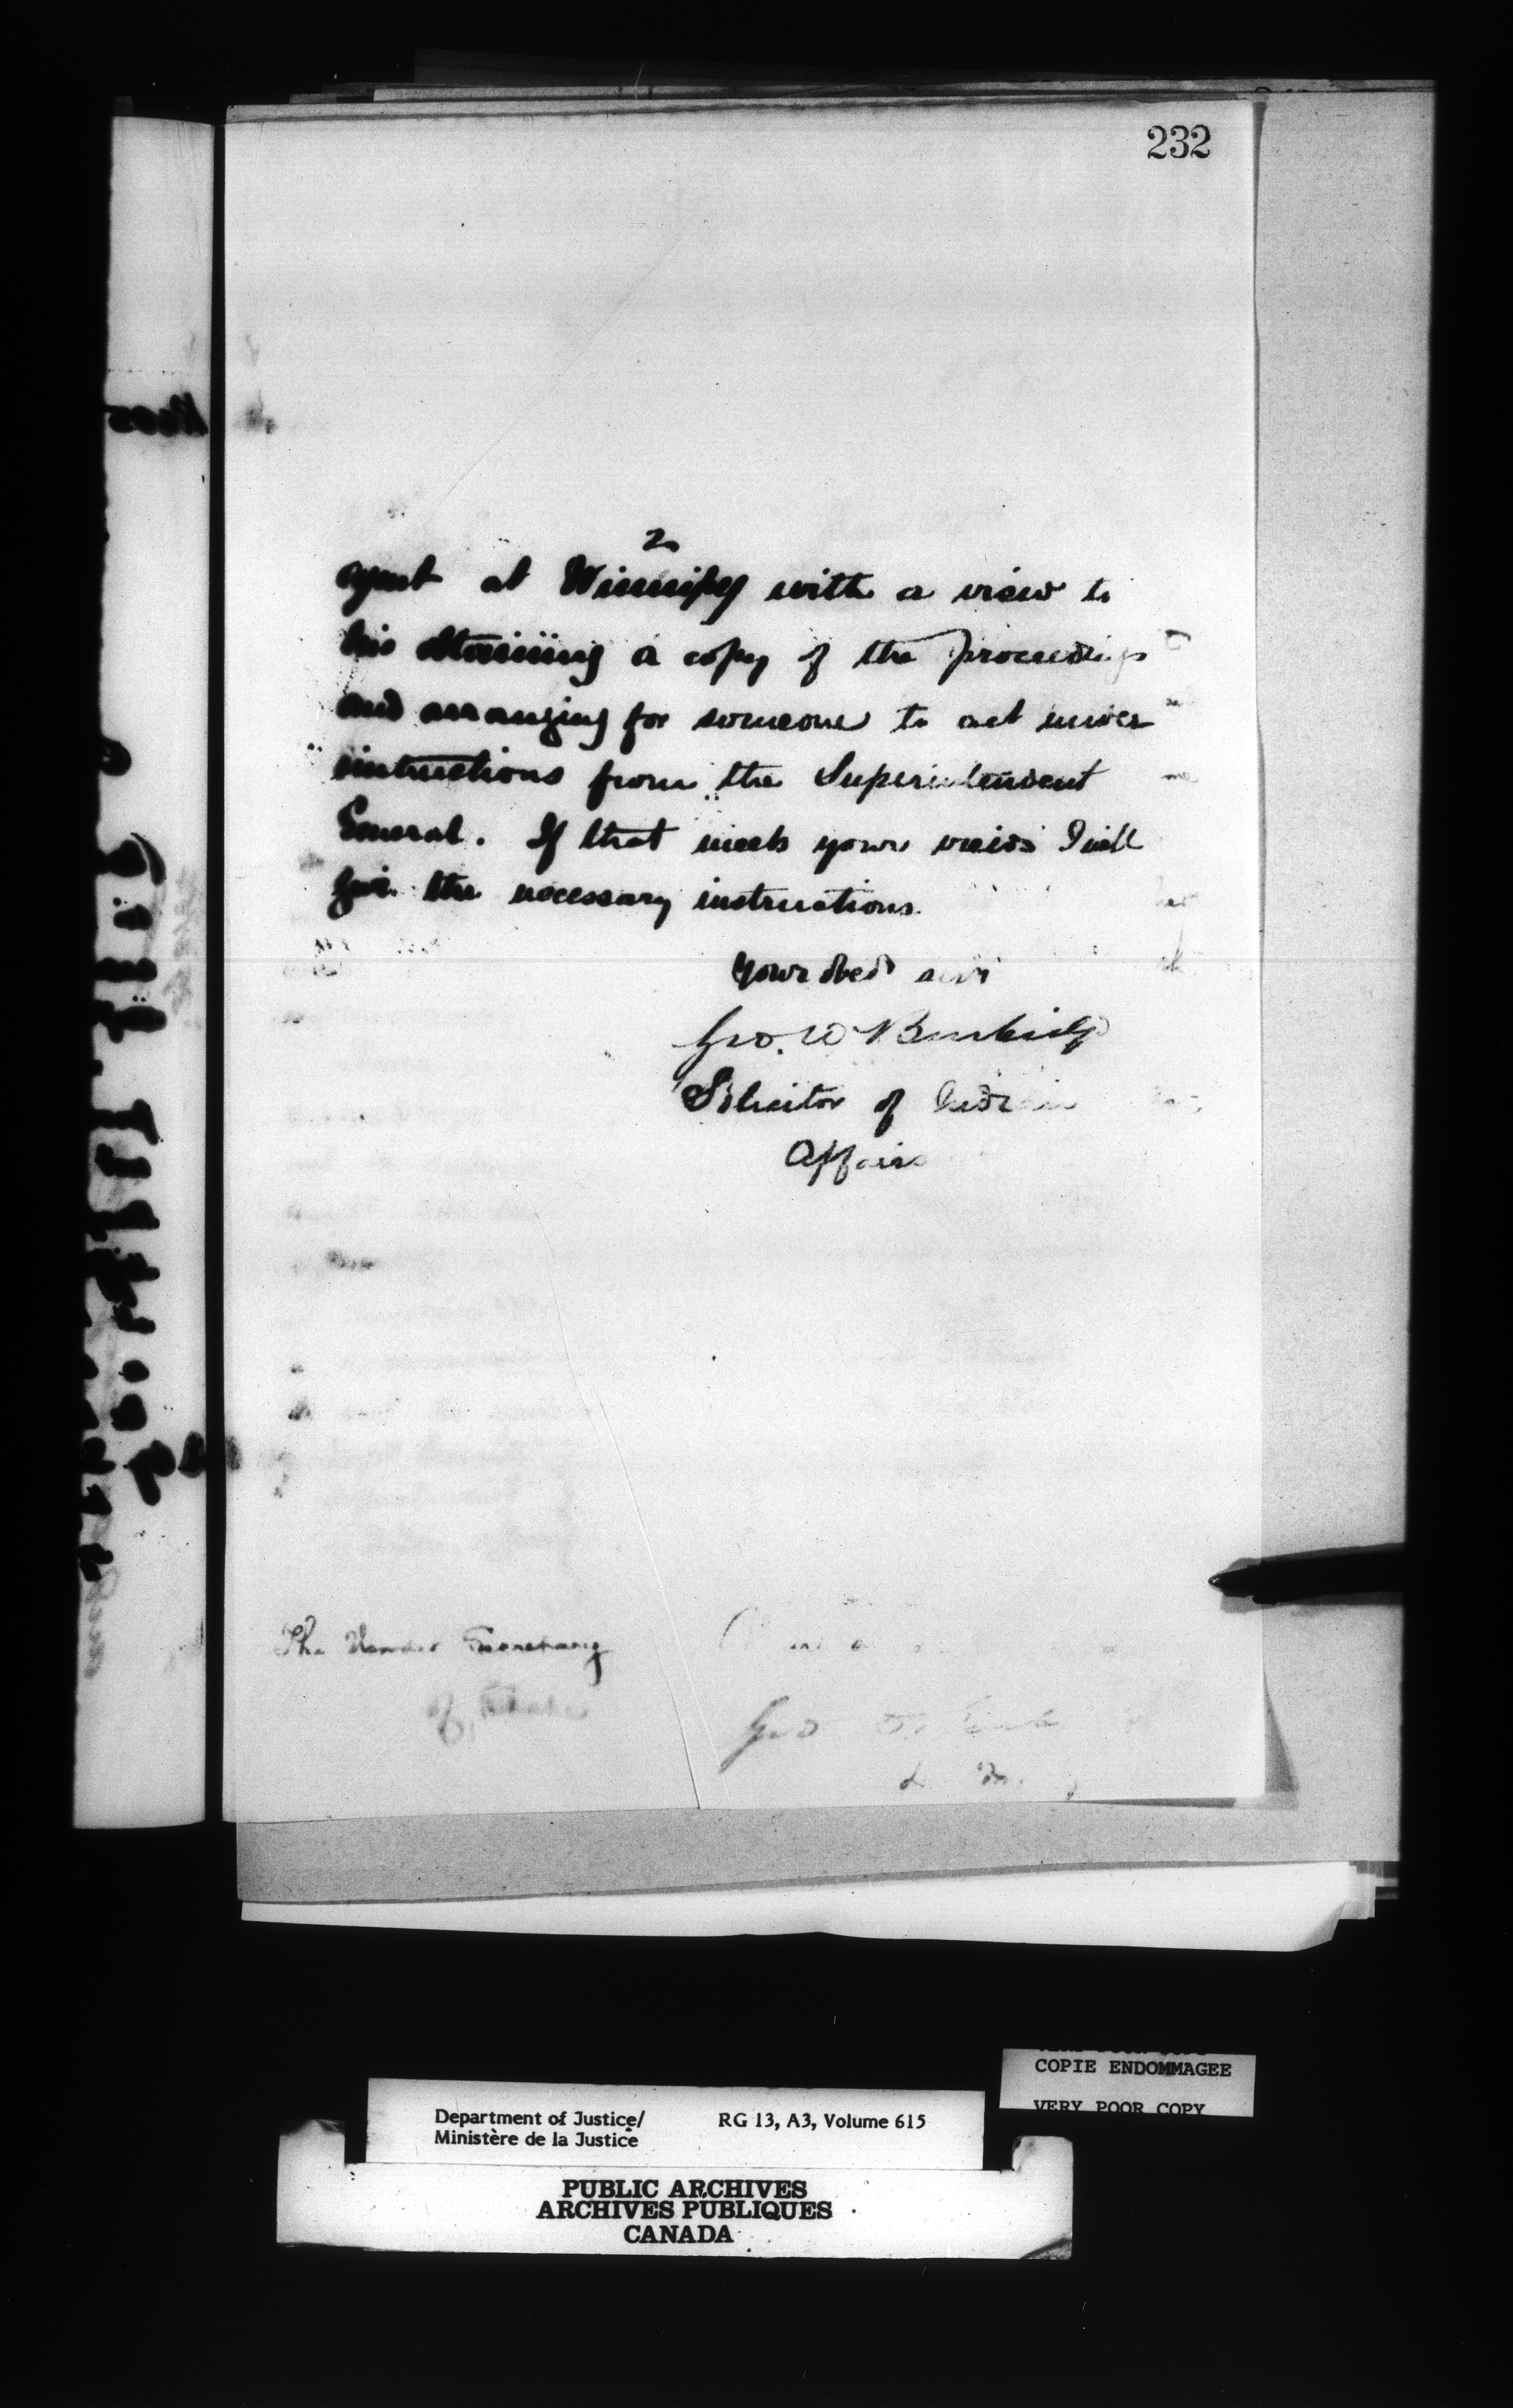 232
2
agent at Winnipeg with a view to
his obtaining a copy of the proceedings
and arranging for someone to act under
instructions from the Superintendent
General. If that meets your views I will
give the necessary instructions.
Your obed servt
Geo. W Burbidge
Solicitor of Indian
Affairs
The Under Secretary
of State
Geo
COPIE ENDOMMAGEE
VERY POOR COPY
Department of Justice/
Ministère de la Justice
RG 13, A3, Volume 615
PUBLIC ARCHIVES
ARCHIVES PUBLIQUES
CANADA